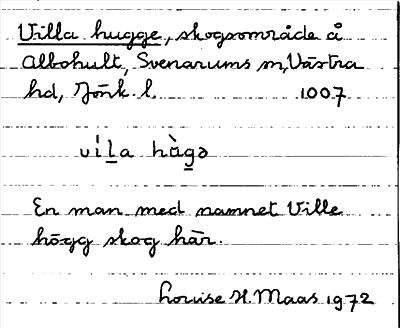 Villa hugge, skogsområde å
Albohult, Svenarums sn, Västra
hd, Jönk. l. 1007
vílla hàgə
En man med namnet Ville
högg skog här.
Louise H. Maas 1972